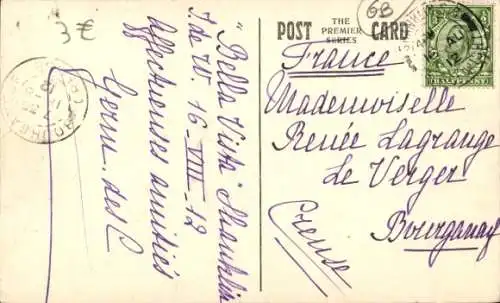 3 €
GB
POST CARD
THE
PREMIER
SERIES
HALFPENNY
AU
12
France
Mademoiselle
Renée Lagrange
Le Verger
Bourganeuf
Creuse
"Bella Vista" Shanklin
I. de W. 16-VIII-12
Affectueuses amitiés
Germ. des C